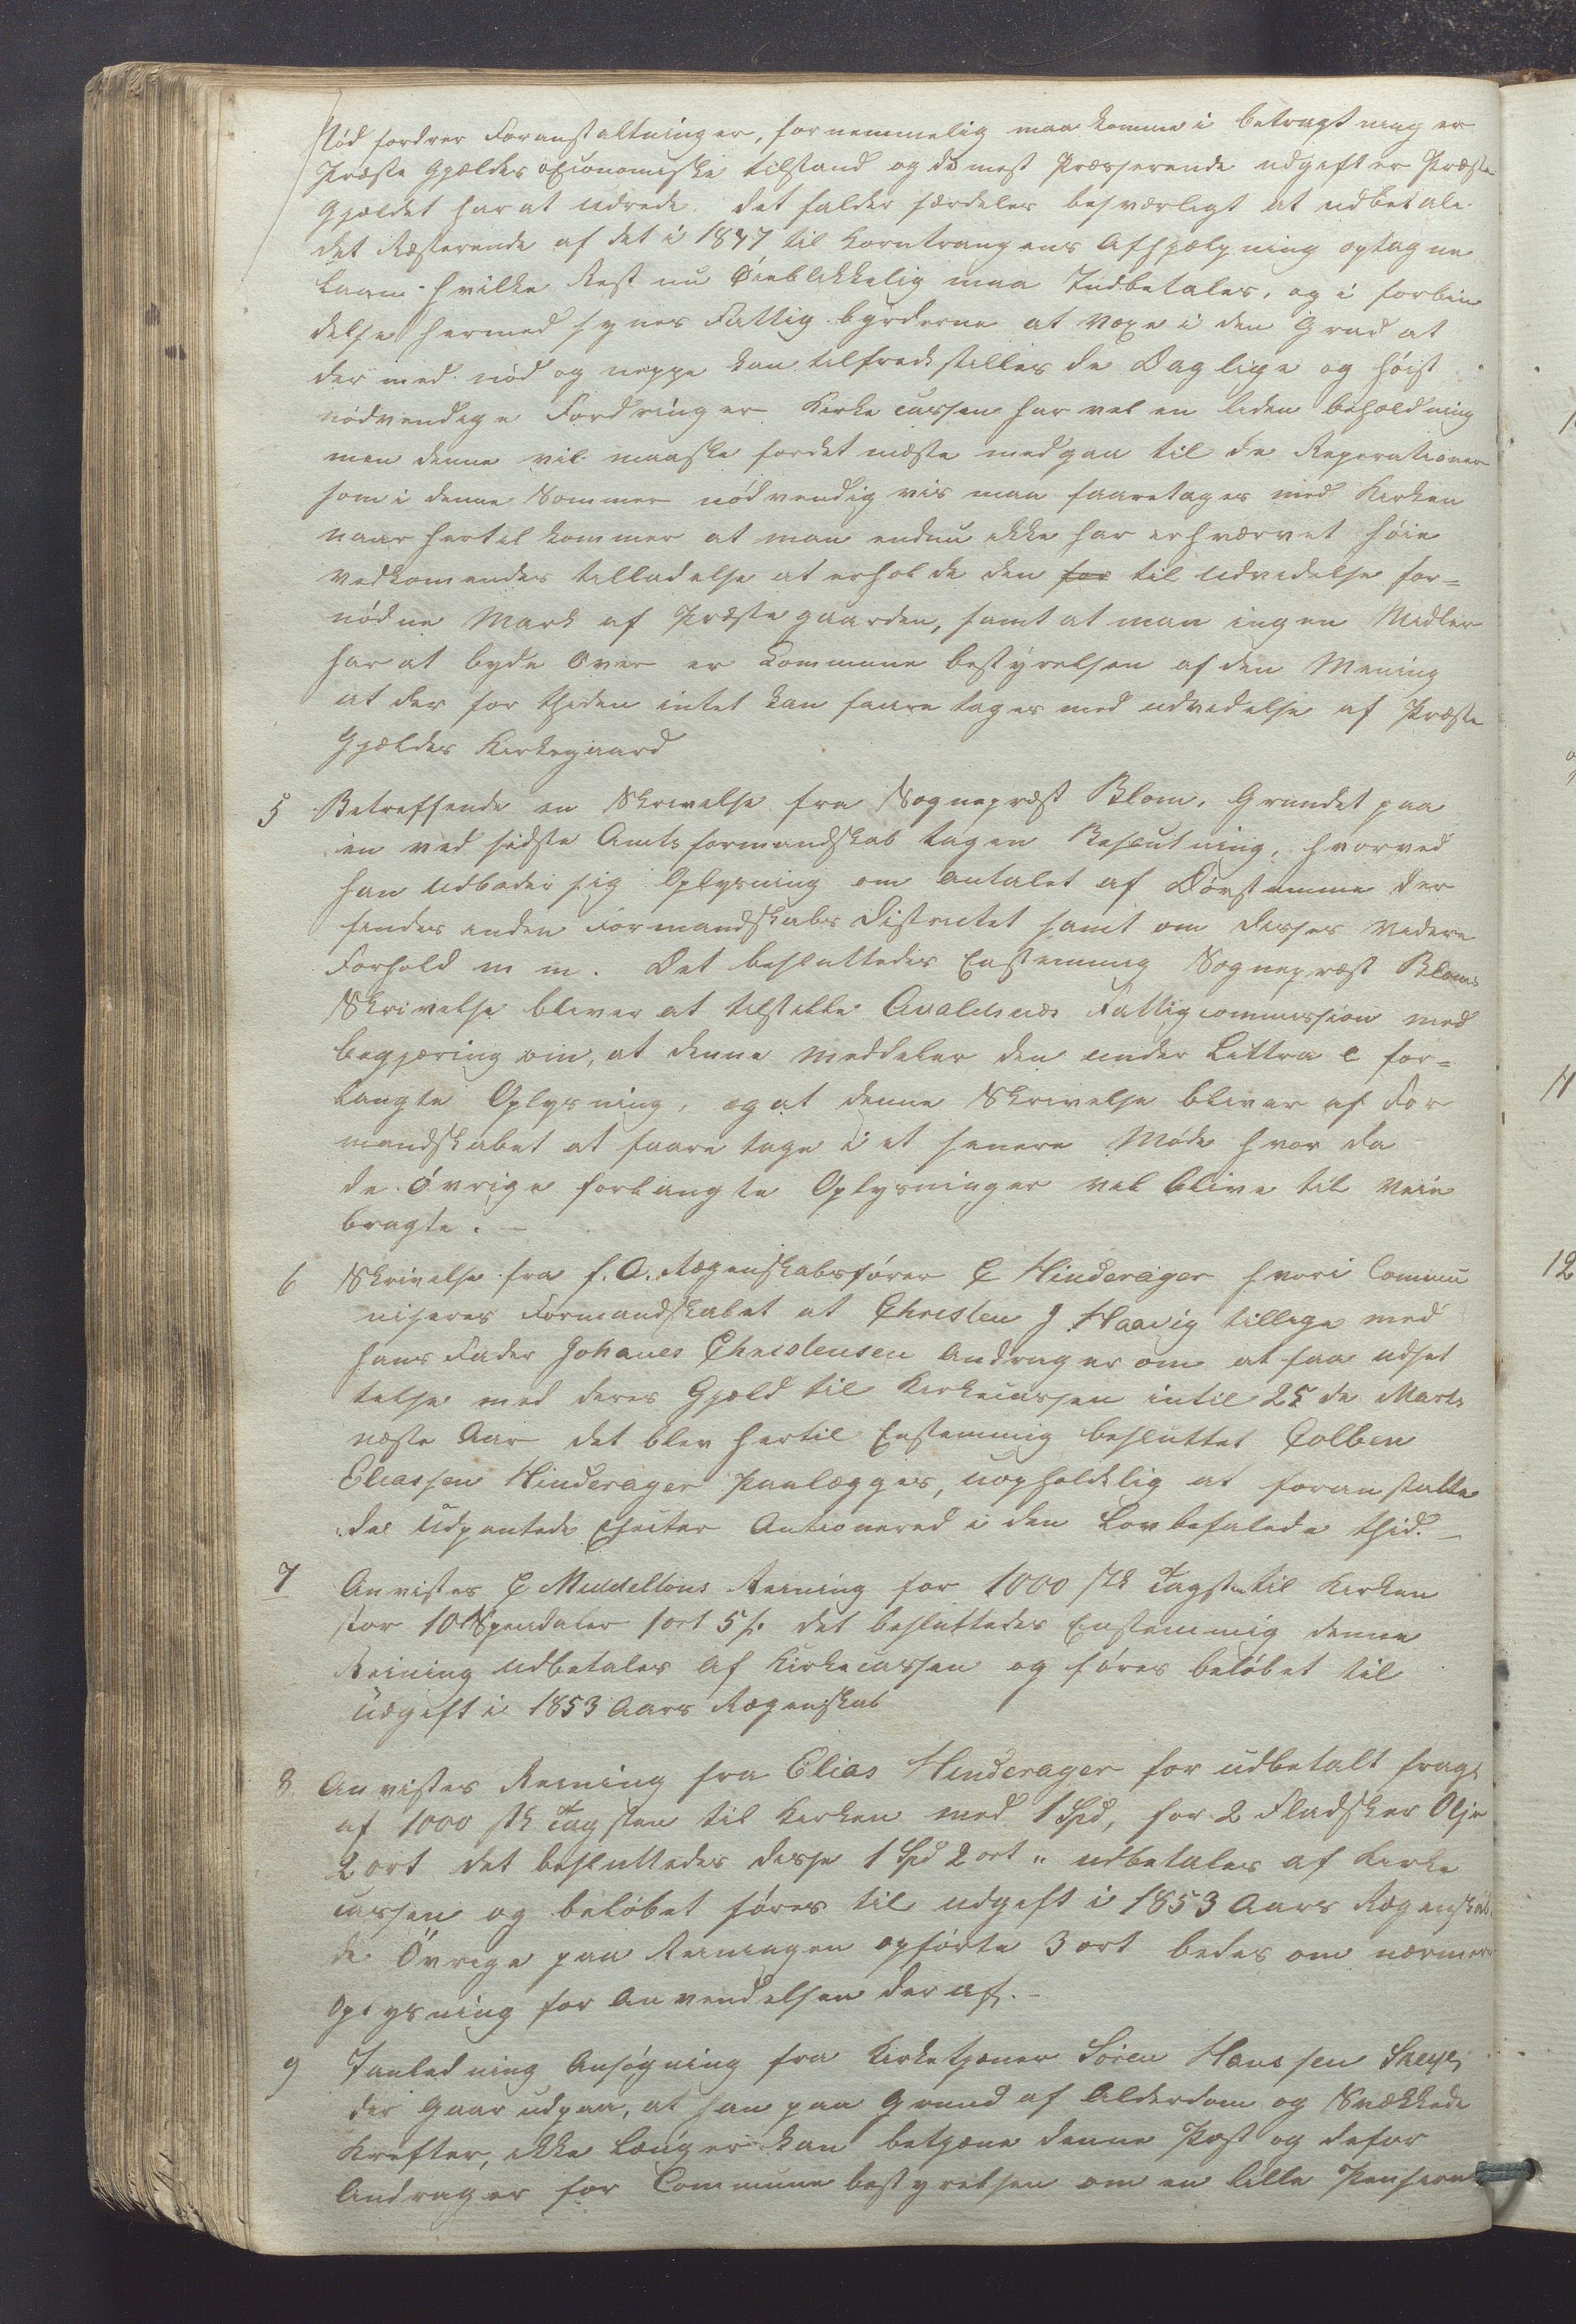 Nöd fordrer Foranstaltninger, fornemmelig maa komme i betragtning er
Præste Gjældes oeconomiske tilstand og de mest Presserende udgifter Præste
Gjældet har at udrede. det falder særdeles besværligt at udbetale
det Resterende af det i 1847 til Korntrangens Afhjælpning optagne
Laan - hvilke Rest nu Öieblikkelig maa Indbetales, og i forbin
delse hermed synes Fattig byrderne at voxe i den Grad at
der med nöd og neppe kan tilfredsstilles de Daglige og höist
nödvendige Fordringer Kirke cassen har vel en liden beholdning
men denne vil maaske fordet meste medgaa til de Reperationer
som i denne Sommer nödvendig vis maa faaretages med Kirken
naar hertil kommer at man endnu ikke har erhværvet höie
vedkomendes tilladelse at erholde den for til Udvidelse for=
nödne Mark af Præste gaarden, samt at man ingen Midler
har at byde over er Commune bestyrelsen af den Mening
at der for thiden intet kan faare tages med udvidelse af Præste
Gjældes Kirkegaard
5 Betreffende en Skrivelse fra Sognepræst Blom, Grundet paa
en ved sidste Amtsformandskab tagen Beslutning, hvorved
han Udbeder sig Oplysning om antalet af Dövstumme der
findes inden Formandskabs Districtet samt om disses videre
Forhold m m. Det besluttedes Enstemmig Sognepræst Bloms
Skrivelse bliver at tilstille Avaldsnæs Fattigcommission med
begjæring om, at denne meddeler den under Littra c for=
langte Oplysning, og at denne Skrivelse bliver af For
mandskabet at faare tage i et senere Möde hvor da
de övrige forlangte Oplysninger vil blive til veie
bragte. -
6 Skrivelse fra f. A. Regenskabsförer E Hinderager hvori Commu
niseres Formandskabet at Christen J Haavig tillige med
hans Fader Johanes Christensen Andrager om at faa udset
telse med deres Gjæld til Kirkecassen intil 25 de Marts
næste Aar det blev hertil Enstemmig besluttet Colben
Eliassen Hinderager Paalægges, uopholdelig at foranstalte
de Udpantede Effecter Auctionered i den Lovbefalede thid. -
7 Anvistes E Middeltons Reining for 1000 stk Tagsten til Kirken
stor 10 Speciedaler 1 ort 5 s. det besluttedes Enstemmig denne
Reining udbetales af Kirkecassen og föres belöbet til
Udgift i 1853 Aars Regenskab
8 Anvistes Reining fra Elias Hinderager for udbetalt fragt
af 1000 stk Tagsten til Kirken med 1 Spd, for 2 Fladsker Olje
2 ort det besluttedes disse 1 Spd 2 ort " udbetales af Kirke
cassen og belöbet föres til udgift i 1853 Aars Regenskab
de Övrige paa Reiningen opförte 3 ort bedes om nærmere
Oplysning for Anvendelsen deraf. -
9 Ianledning Ansögning fra Kirketjener Sören Hanssen
der gaar udpaa, at han paa Grund af Alderdom og Svækkede
Krefter, ikke længer kan betjene denne Post og defor
Andrager for Commune bestyrelsen om en lille Pension
12